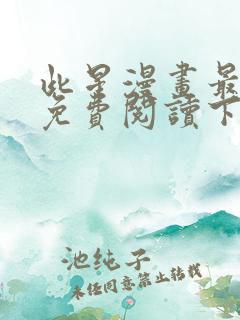 此星漫畫最
免費閱讀下
池纯子
未任同意禁止转载